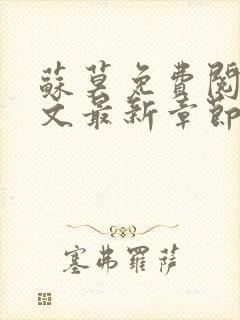 蘇莫免費閱
文最新章節
塞弗羅薩